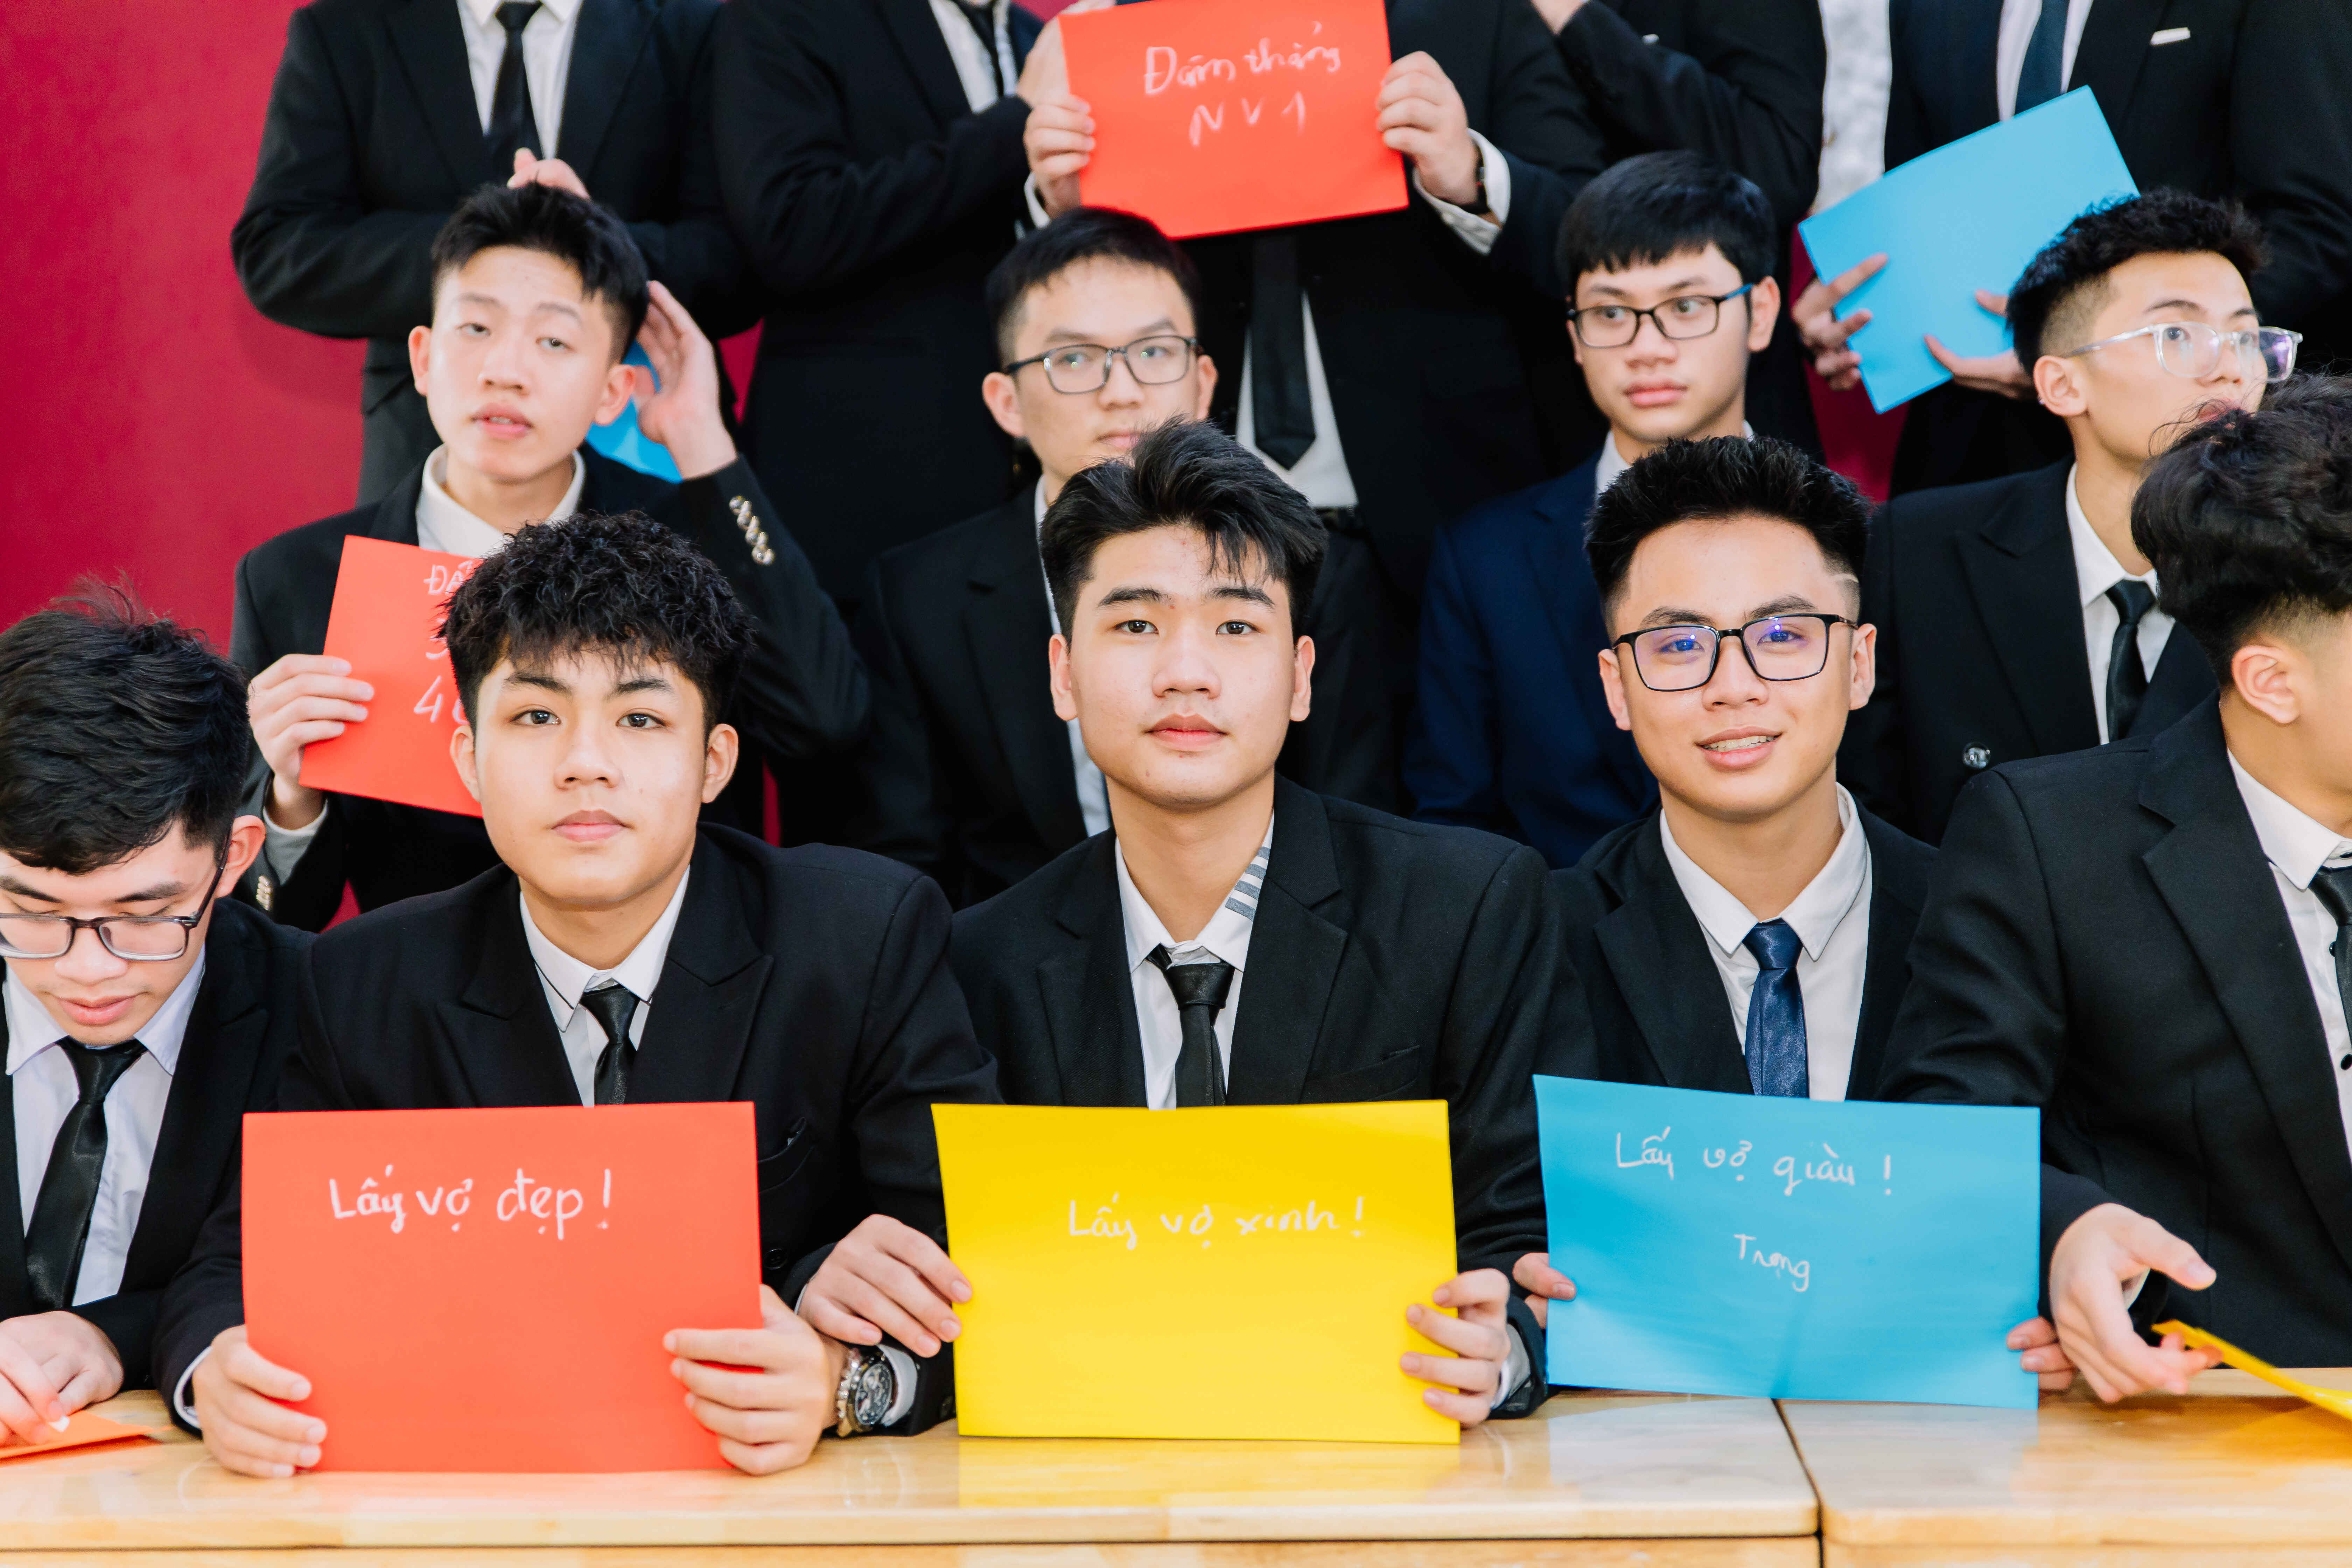 Đâm thẳng
NV1
Lấy vợ đẹp!
Lấy vợ xinh!
Lấy vợ giàu!
Trọng